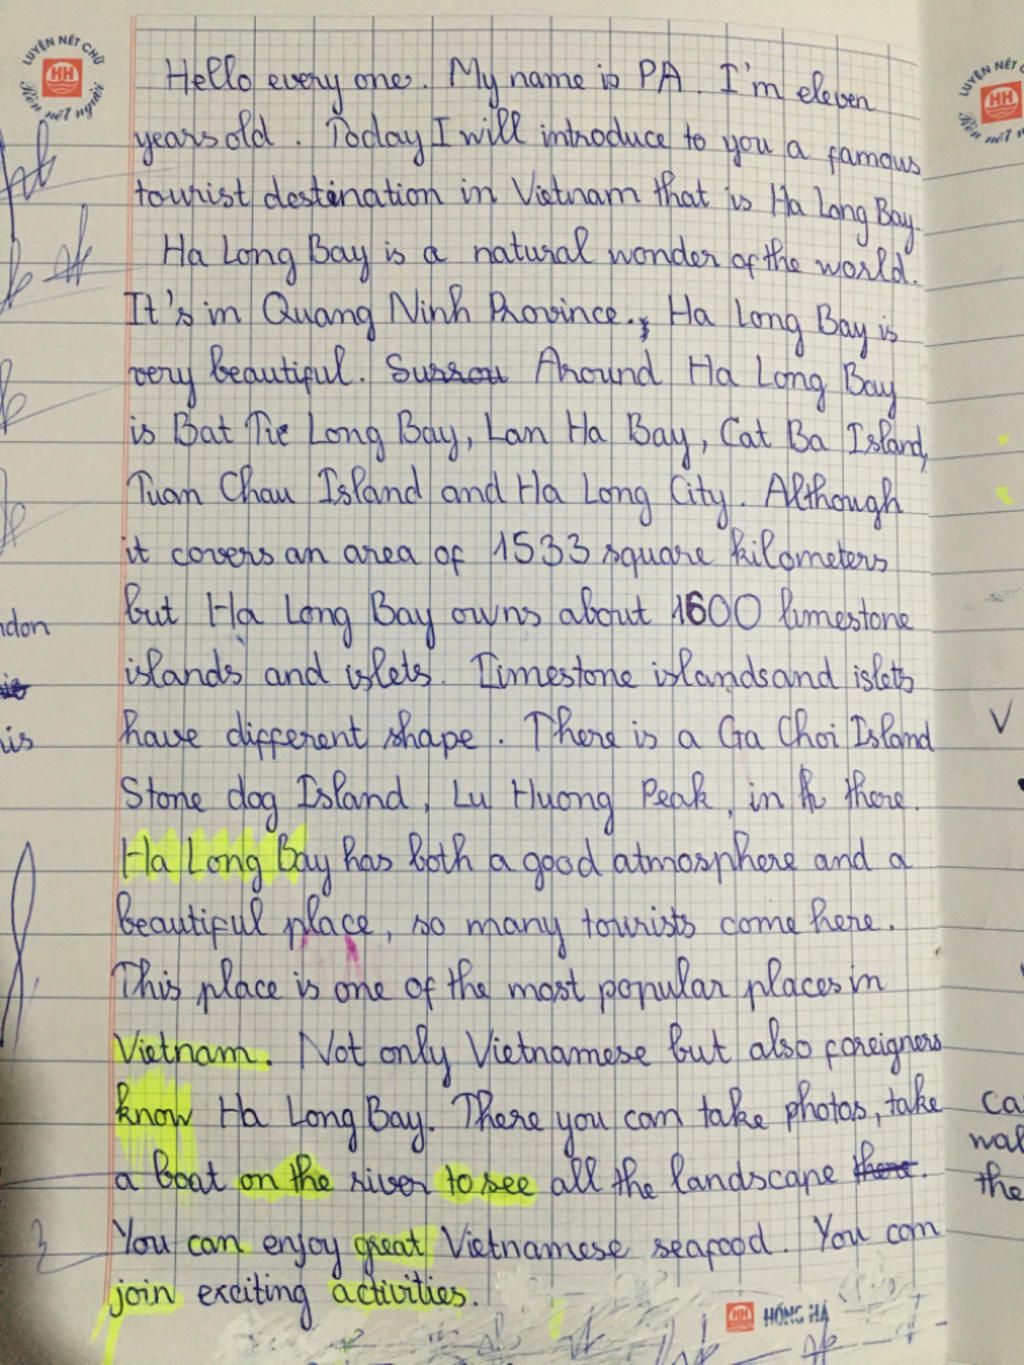 LUYỆN NÉT CHỮ
HH
Rèn nết người
Hello every one. My name is PA. I'm eleven
years old. Today I will introduce to you a famous
tourist destination in Vietnam that is Ha Long Bay.
Ha Long Bay is a natural wonder of the world.
It's in Quang Ninh Province., Ha Long Bay is
very beautiful. Surrou Around Ha Long Bay
is Bat Tie Long Bay, Lan Ha Bay, Cat Ba Island,
Tuan Chau Island and Ha Long City. Although
it covers an area of 1533 square kilometers
but Ha Long Bay owns about 1600 limestone
islands and islets. Limestone islands and islets
have different shape. There is a Ga Choi Island
Stone dog Island, Lu Huong Peak, in th there.
Ha Long Bay has both a good atmosphere and a
beautiful place, so many tourists come here.
This place is one of the most popular places in
Vietnam. Not only Vietnamese but also foreigners
know Ha Long Bay. There you can take photos, take
a boat on the river to see all the landscape there.
You can enjoy great Vietnamese seafood. You can
join exciting activities.
HH HỒNG HÀ
ndon
his
LUYỆN NÉT
HH
Rèn nết n
V
Ca
wal
the